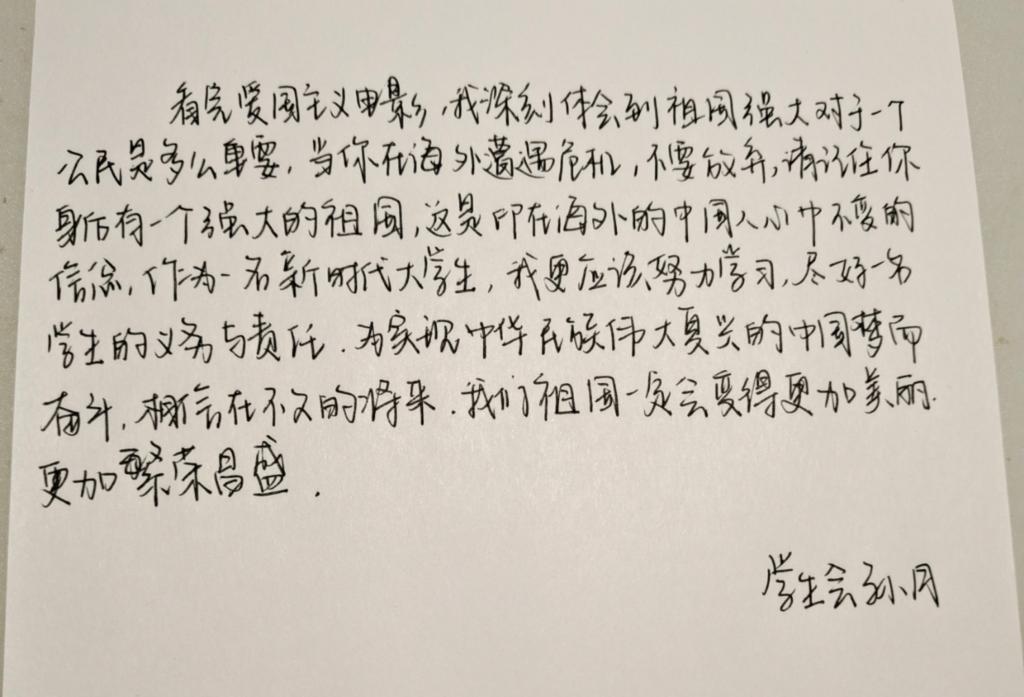 看完爱国主义电影,我深刻体会到祖国强大对于一个
公民是多么重要,当你在海外遭遇危机,不要放弃,请记住你
身后有一个强大的祖国,这是印在海外的中国人心中不变的
信念,作为一名新时代大学生,我更应该努力学习,尽好一名
学生的义务与责任.为实现中华民族伟大复兴的中国梦而
奋斗,相信在不久的将来.我们祖国一定会变得更加美丽.
更加繁荣昌盛.
学生会孙月